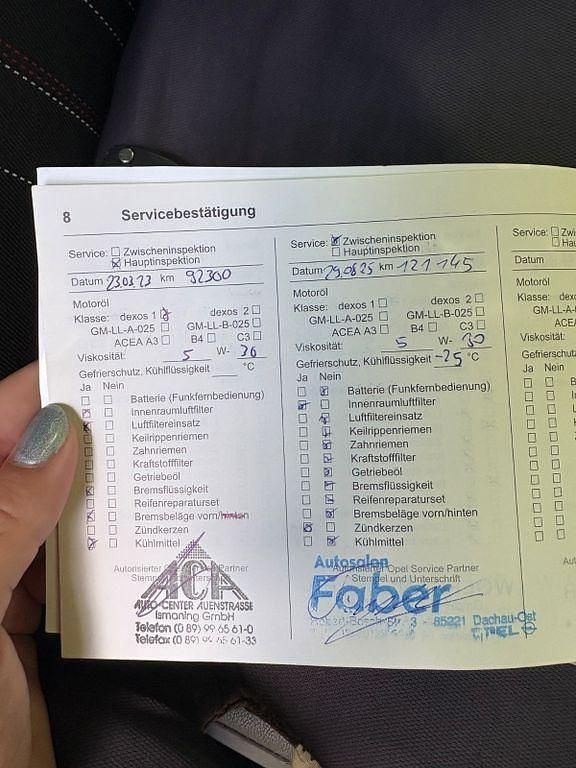 8 Servicebestätigung
Service: Zwischeninspektion
Hauptinspektion
Datum 23.03.23 km 92300
Motoröl
Klasse: dexos 1 dexos 2
GM-LL-A-025 GM-LL-B-025
ACEA A3 B4 C3
Viskosität: 5 W- 30
Gefrierschutz, Kühlflüssigkeit °C
Ja Nein
Batterie (Funkfernbedienung)
Innenraumluftfilter
Luftfiltereinsatz
Keilrippenriemen
Zahnriemen
Kraftstofffilter
Getriebeöl
Bremsflüssigkeit
Reifenreparaturset
Bremsbeläge vorn/hinten
Zündkerzen
Kühlmittel
Autorisierter Partner
ACA
AUTO-CENTER AUENSTRASSE
Ismaning GmbH
Telefon (0 89) 99 65 61-0
Telefax (0 89) 99 65 61-33
Service: Zwischeninspektion
Hauptinspektion
Datum 29.08.25 km 121145
Motoröl
Klasse: dexos 1 dexos 2
GM-LL-A-025 GM-LL-B-025
ACEA A3 B4 C3
Viskosität: 5 W- 30
Gefrierschutz, Kühlflüssigkeit -25 °C
Ja Nein
Batterie (Funkfernbedienung)
Innenraumluftfilter
Luftfiltereinsatz
Keilrippenriemen
Zahnriemen
Kraftstofffilter
Getriebeöl
Bremsflüssigkeit
Reifenreparaturset
Bremsbeläge vorn/hinten
Zündkerzen
Kühlmittel
Autorisierter Opel Service Partner
Stempel und Unterschrift
Autosalon
Faber
3 - 85221 Dachau-Ost
OPEL
Service: Zwi
Hau
Datum
Motoröl
Klasse: d
GM-LL-A
ACE
Viskosität:
Gefrierschutz
Ja Nein